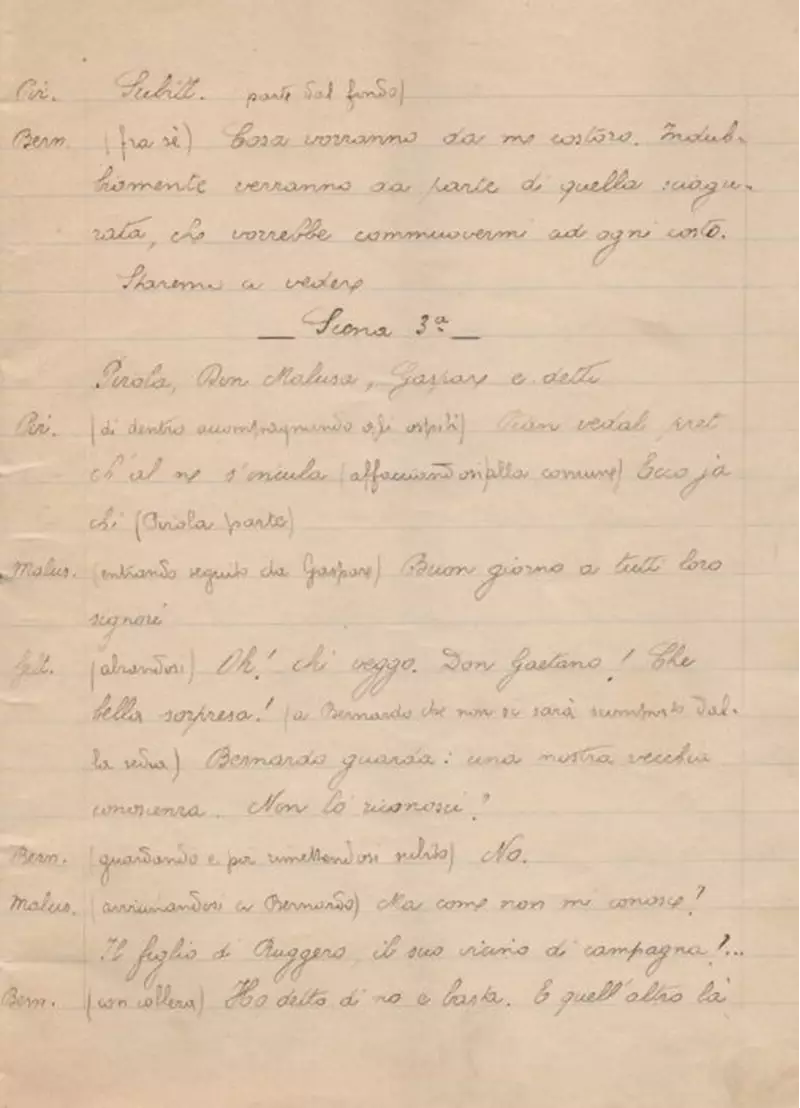 Pir. Subitt. parte dal fondo)
Bern. (fra sè) Cosa vorranno da me costoro. Indub-
biamente verranno da parte di quella sciagu-
rata, che vorrebbe commuovermi ad ogni costo.
Staremo a vedere
— Scena 3ª —
Pirola, Don Malusa, Gaspare e detti
Pir. (di dentro accompagnando gli ospiti) vedal pret
ch'al ne s'encula (affacciandosi alla comune) Ecco ja
chi (Pirola parte)
Malus. (entrando seguito da Gaspare) Buon giorno a tutti loro
signori
(alzandosi) Oh! chi veggo. Don Gaetano! Che
bella sorpresa! (a Bernardo che non si sarà scomposto dal-
la sedia) Bernardo guarda: una nostra vecchia
conoscenza. Non lo riconosci?
Bern. (guardando e poi rimettendosi subito) No.
Malus. (avvicinandosi a Bernardo) Ma come non mi conosce?
Il figlio di Ruggero, il suo vicino di campagna?...
Bern. (con collera) Ho detto di no e basta. E quell'altro là